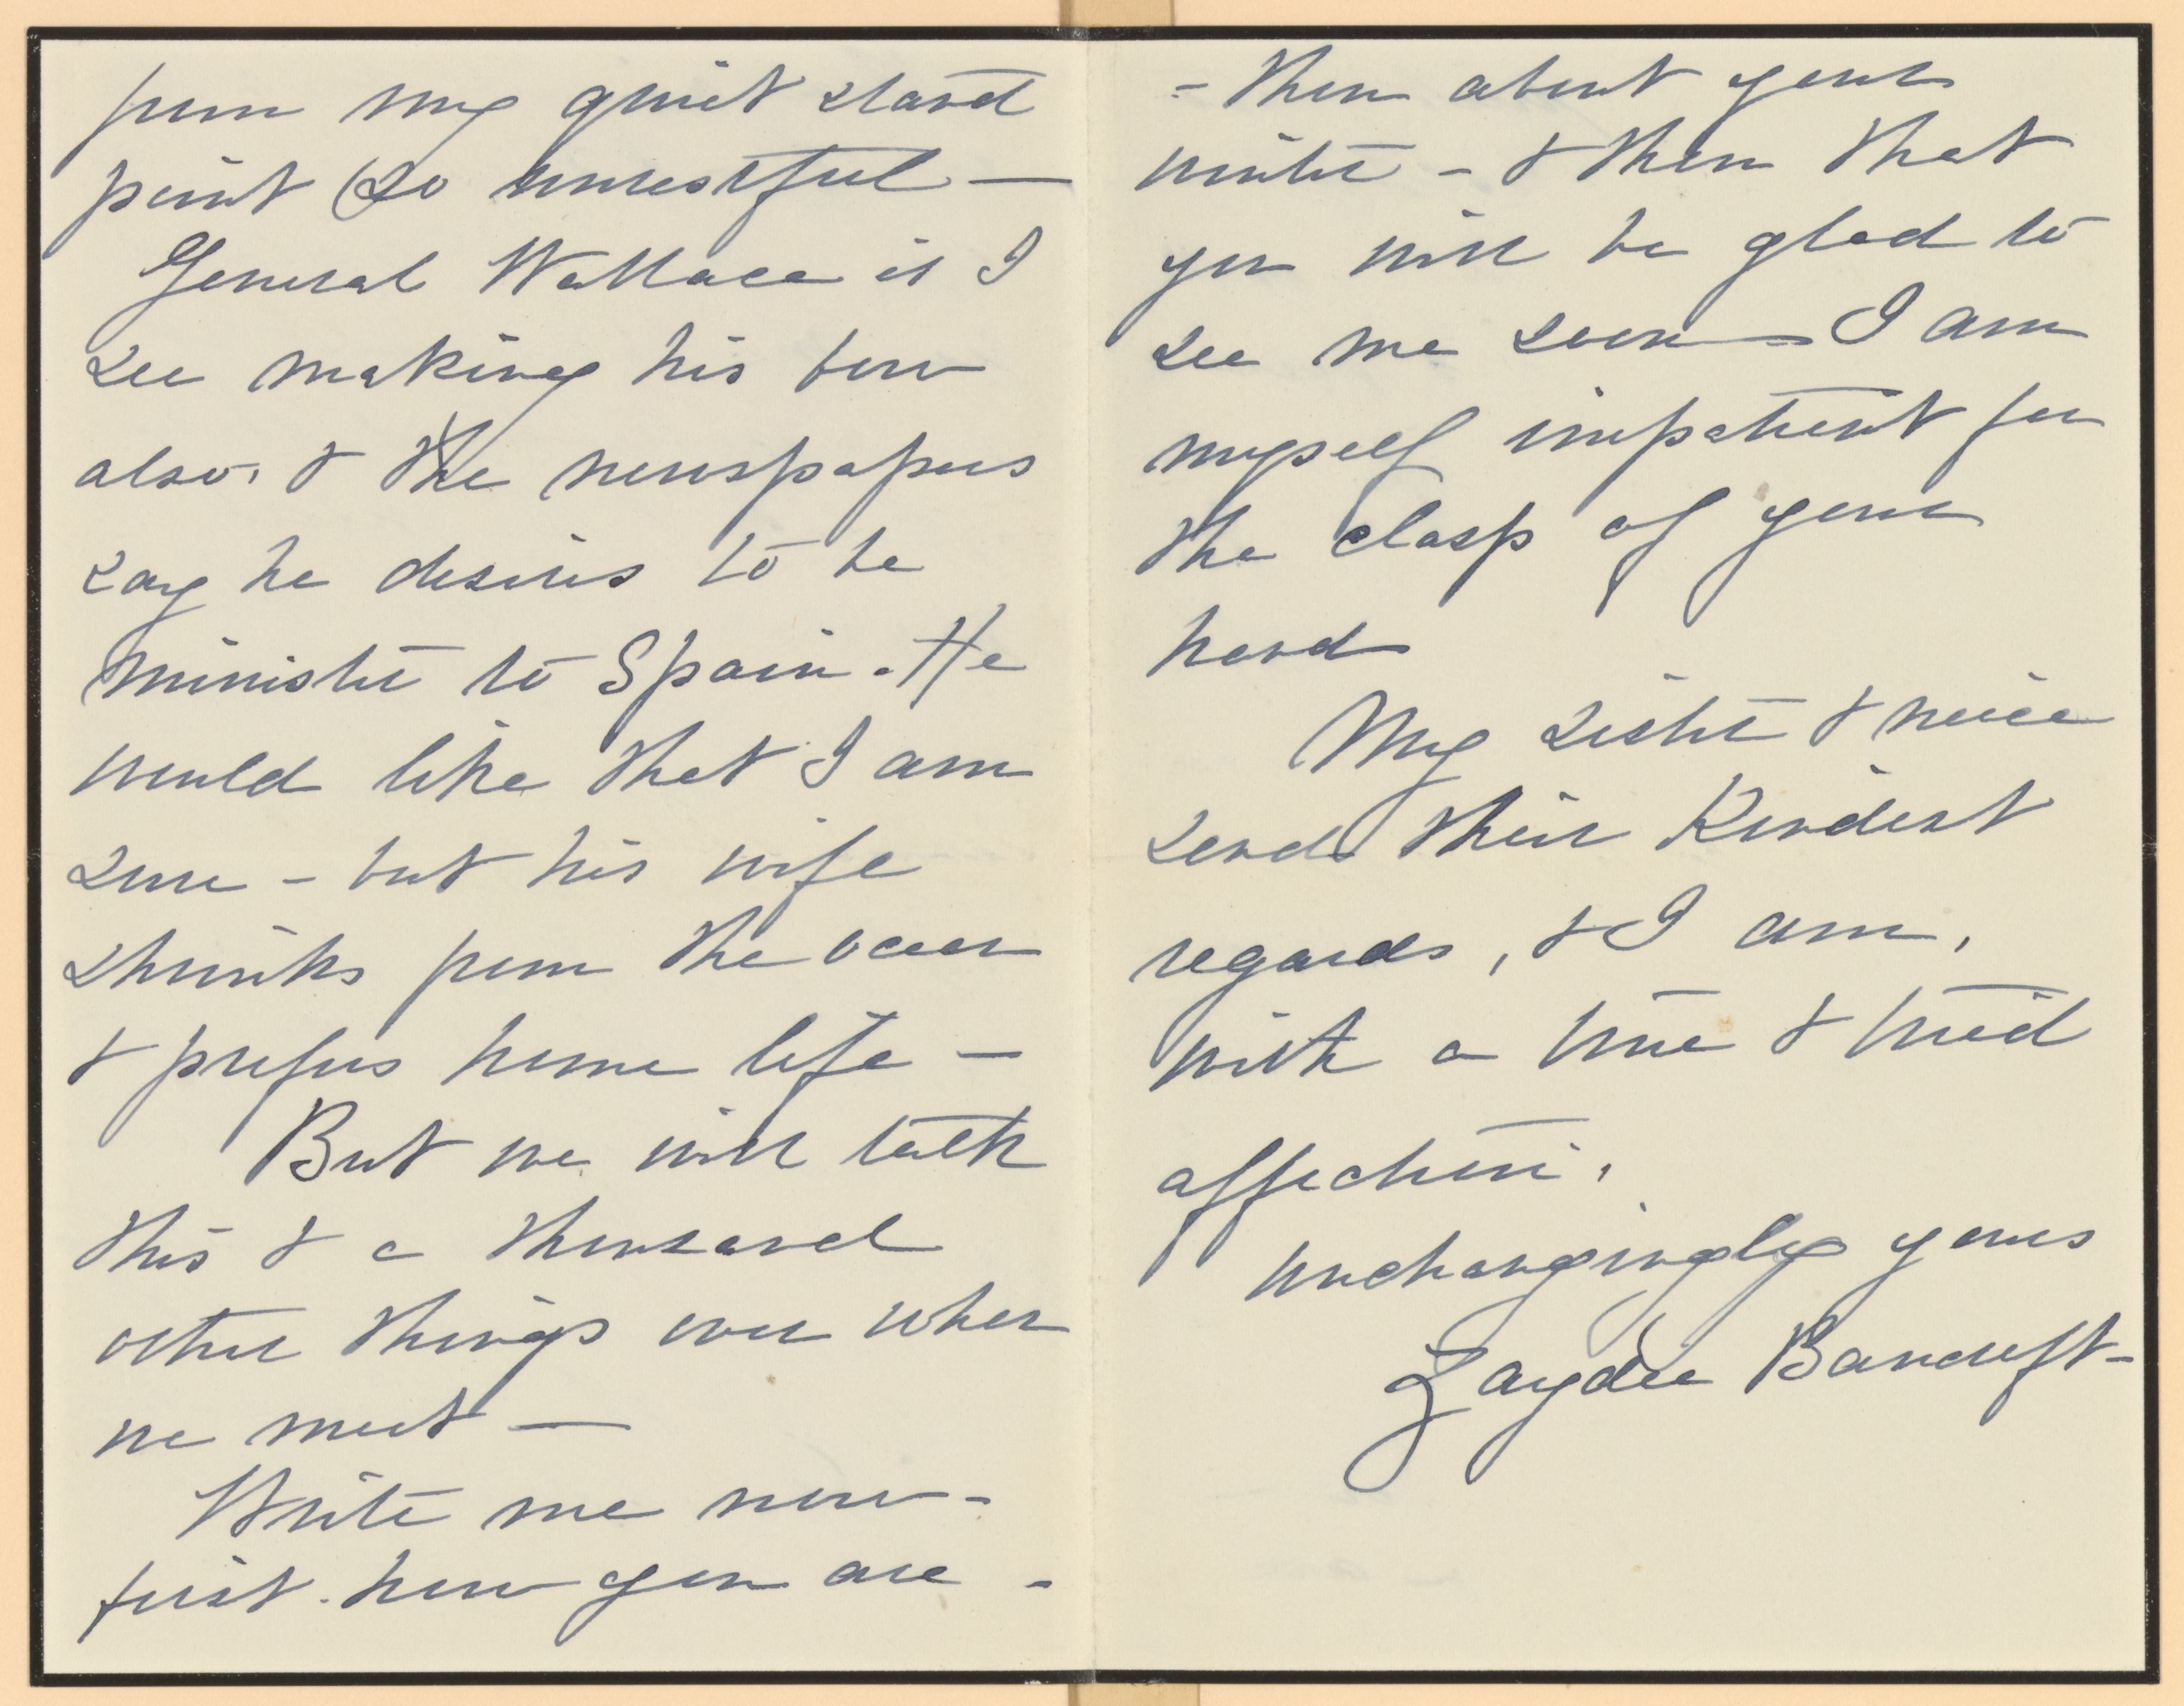 from my quiet stand
point so unrestful —
General Wallace is I
see making his bow
also. & the newspapers
say he desires to be
minister to Spain. He
would like that I am
sure - but his wife
shrinks from the ocean
& prefers home life —
But we will talk
this & a thousand
other things over when
we meet —
Write me now -
first. how you are -
- then about your
winter - & then that
you will be glad to
see me soon — I am
myself impatient for
the clasp of your
hand
My sister & neice
send their Kindest
regards, & I am,
with a true & tried
affection,
unchangingly yours
Zaydee Bancroft -